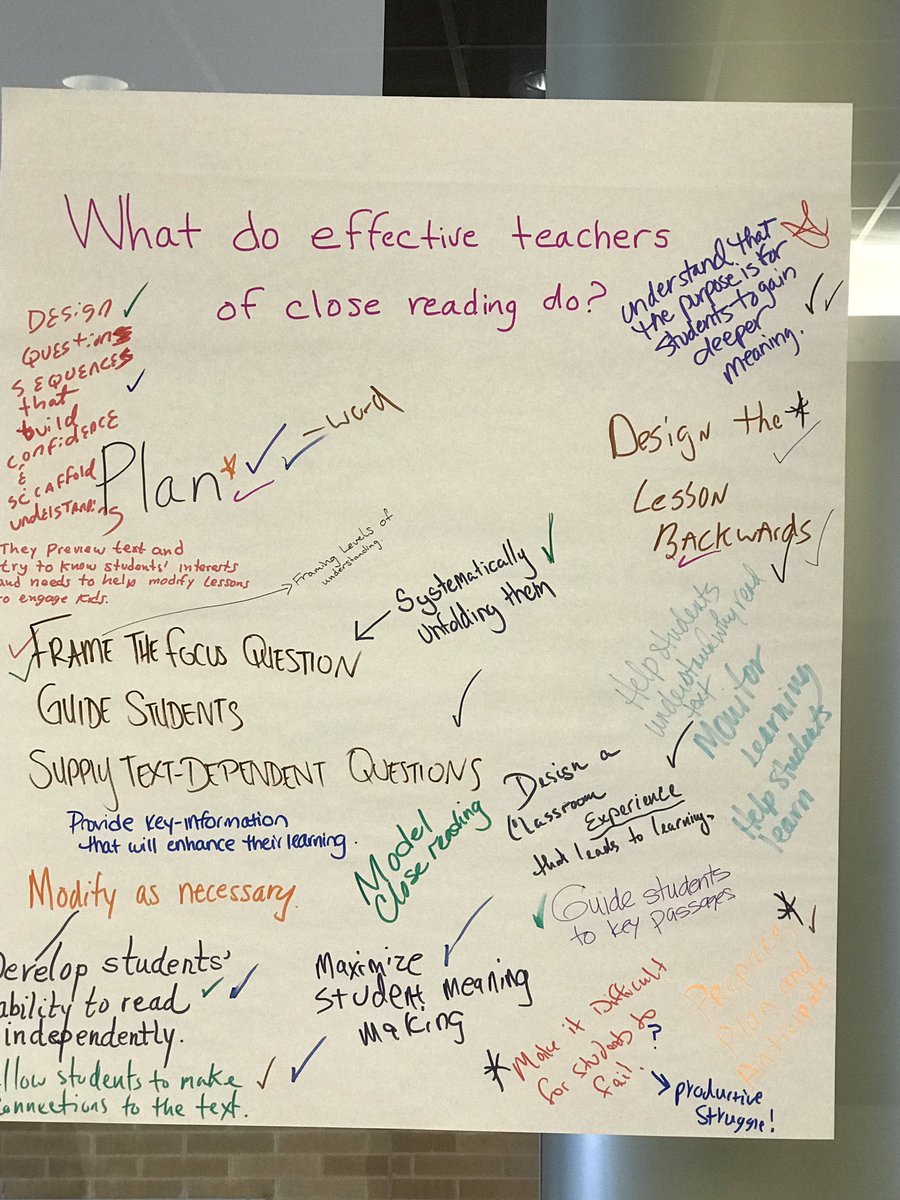 What do effective teachers
of close reading do?
understand that
the purpose is for
students to gain
deeper
meaning.
DESIGN
QUESTIONS
SEQUENCES
that
build
CONFIDENCE
&
SCAFFOLD
UNDERSTANDING
Plan
- word
Design the
Lesson
BACKWARDS
They Preview text and
try to know students' interests
and needs to help modify Lessons
to engage Kids.
Framing Levels of
understanding
Systematically
unfolding them
FRAME THE FOCUS QUESTION
GUIDE STUDENTS
SUPPLY TEXT-DEPENDENT QUESTIONS
Help students
understand why read
text
Monitor
Learning
Help students
learn
Provide key-information
that will enhance their learning.
Model
close reading
Design a
Classroom
Experience
that leads to learning.
Modify as necessary.
Guide students
to key passages
Develop students'
ability to read
independently.
Maximize
student meaning
making
Prepare,
Plan and
Anticipate
Make it Difficult
for students to
fail.
?
productive
struggle!
allow students to make
connections to the text.